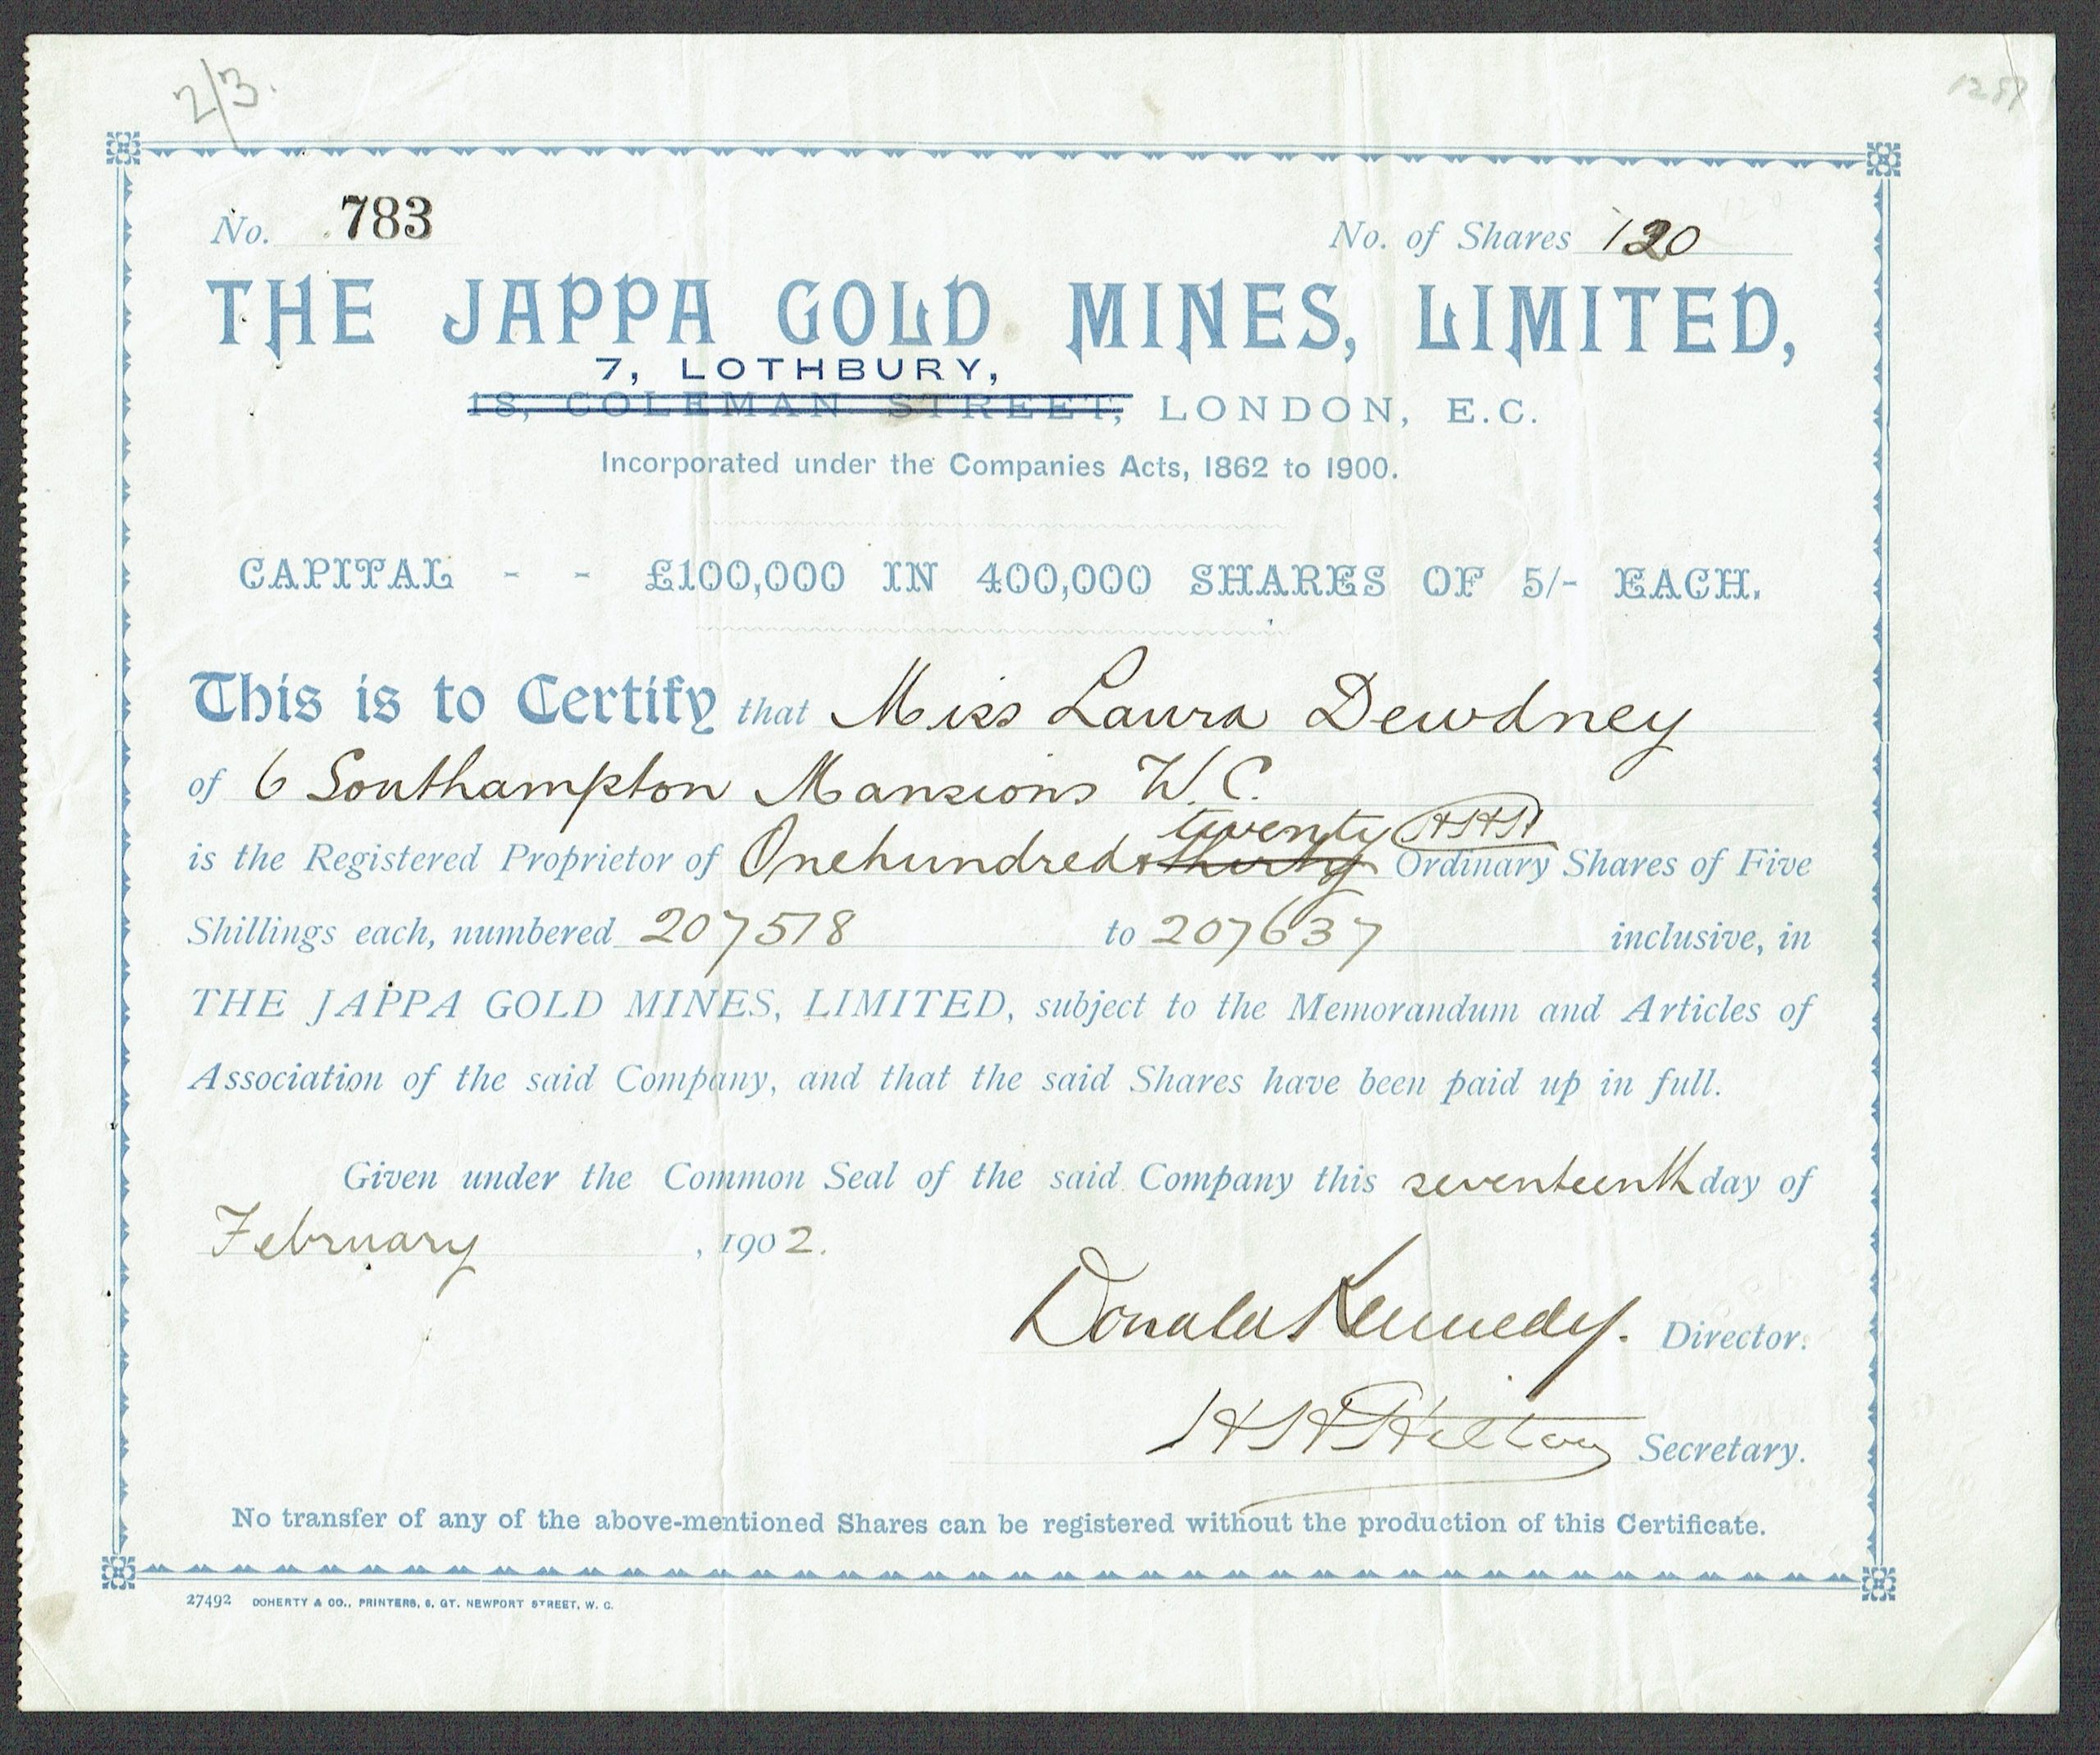 2/3.
1287
No. 783
No. of Shares 120
THE JAPPA GOLD MINES, LIMITED,
7, LOTHBURY,
18, COLEMAN STREET, LONDON, E.C.
Incorporated under the Companies Acts, 1862 to 1900.
CAPITAL - - £100,000 IN 400,000 SHARES OF 5/- EACH.
This is to Certify that Miss Laura Dewdney
of 6 Southampton Mansions W.C.
twenty HHH
is the Registered Proprietor of Onehundred & thirty Ordinary Shares of Five
Shillings each, numbered 207518 to 207637 inclusive, in
THE JAPPA GOLD MINES, LIMITED, subject to the Memorandum and Articles of
Association of the said Company, and that the said Shares have been paid up in full.
Given under the Common Seal of the said Company this seventeenth day of
February, 1902.
Donald Kennedy. Director.
HH Hilton Secretary.
No transfer of any of the above-mentioned Shares can be registered without the production of this Certificate.
27492 DOHERTY & CO., PRINTERS, 6, GT. NEWPORT STREET, W. C.